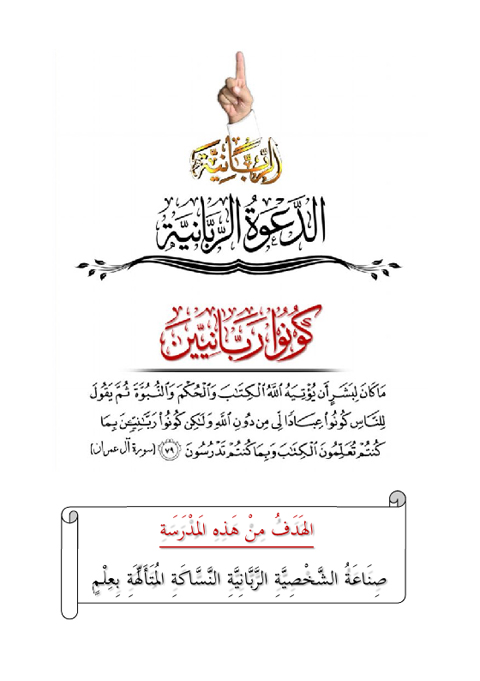 الربانية
الدَّعوَةُ الرَّبَّانِيَّة
كُونُوا رَبَّانِيِّينَ
مَا كَانَ لِبَشَرٍ أَن يُؤْتِيَهُ اللَّهُ الْكِتَٰبَ وَالْحُكْمَ وَالنُّبُوَّةَ ثُمَّ يَقُولَ
لِلنَّاسِ كُونُوا۟ عِبَادًا لِّي مِن دُونِ اللَّهِ وَلَٰكِن كُونُوا۟ رَبَّٰنِيِّـۧنَ بِمَا
كُنتُمْ تُعَلِّمُونَ الْكِتَٰبَ وَبِمَا كُنتُمْ تَدْرُسُونَ ٧٩ [سورة آل عمران]
الهَدَفُ مِنْ هَذِهِ المَدْرَسَة
صِنَاعَةُ الشَّخْصِيَّةِ الرَّبَّانِيَّةِ النَّسَّاكَةِ المُتَأَلِّهَةِ بِعِلْمٍ